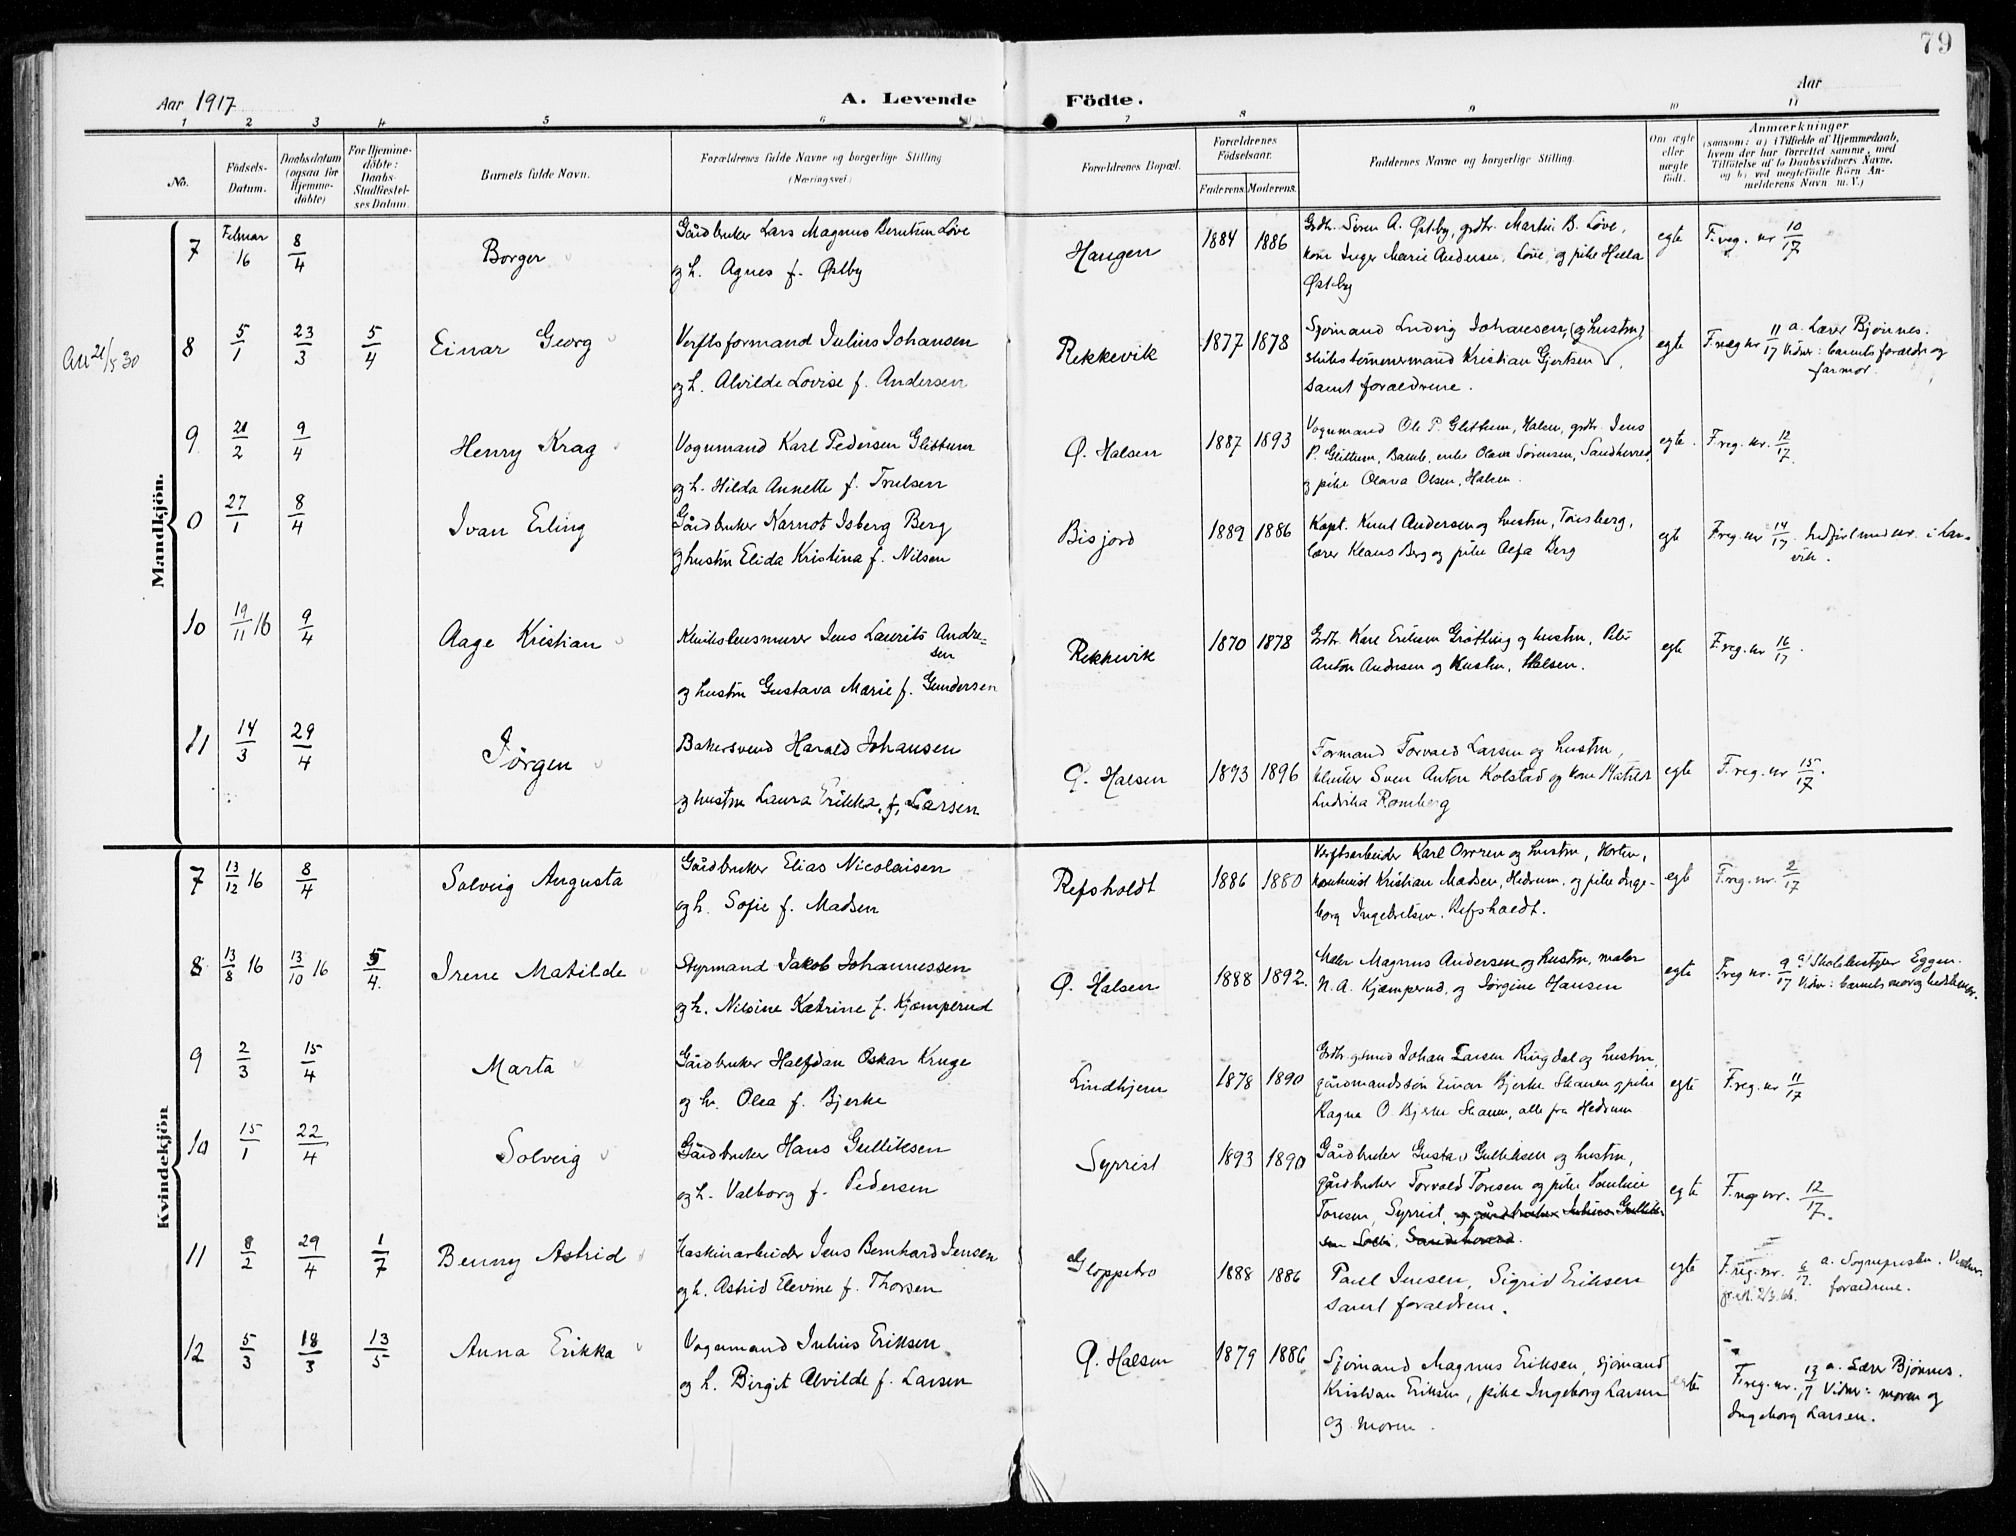 79
Aar 1917
A. Levende
Födte.
Aar
1 2 3 4 5 6 7 8 9 10 11
No.
Födsels-Datum.
Daabsdatum (ogsaa for Hjemme-döbte)
For Hjemme-döbte: Daabs-Stadfæstel-ses Datum.
Barnets fulde Navn.
Forældrenes fulde Navne og borgerlige Stilling (Næringsvei)
Forældrenes Bopæl.
Forældrenes Födselsaar.
Faderens. Moderens.
Faddernes Navne og borgerlige Stilling.
Om ægte eller uægte födt.
Anmærkninger
(saasom: a) i Tilfælde af Hjemmedaab, hvem der har forrettet samme, med Tilföielse af to Daabsvidners Navne, og b) ved uægtefödte Börn An-melderens Navn m. V.)
Mandkjön.
7 Februar 16 8/4 Borger Gårdbruker Lars Magnus Berntsen Løve Haugen 1884 1886 Grdbr. Søren A. Østby, grdbr. Martin B. Løve, egte F.reg. nr 10/17
og h. Agnes f. Østby kone Inger Marie Andersen, Løve, og pike Hilla
Østby
Att 21/5 30
8 5/1 23/3 5/4 Einar Georg Verftsformand Julius Johansen Rekkevik 1877 1878 Sjømand Ludvig Johansen, (og hustru), egte F.reg nr 11/17 a. Lærer Bjønnes.
og h. Alvilde Lovise f. Andersen skibstømmermand Kristian Gjertsen, Vidner: barnets forældre og
samt forældrene. farmor.
9 21/2 9/4 Henry Krag Vognmand Karl Pedersen Glittum Ø. Halsen 1887 1893 Vognmand Ole P. Glittum, Halsen, grdbr. Jens egte. F.reg. nr. 12/17.
og h. Hilda Annette f. Trulsen P. Glittum, Bamle, enke Olava Sørensen, Sandherred,
og pike Olava Olsen, Halsen.
0 27/1 8/4 Ivan Erling Gårdbruker Karnot Isberg Berg Bisjord 1889 1886 Kapt. Knut Andersen og hustru, Tønsberg, egte F.reg. nr 14/17. indført med nr. i Lar-
og hustru Elida Kristina f. Nilsen lærer Klaus Berg og pike Alfa Berg vik.
10 19/11 16 9/4 Aage Kristian Jens Laurits Andre-sen Rekkevik 1870 1878 Grdbr. Karl Eriksen Grøtting og hustru, egte F.reg. nr 16/17.
og hustru Gustava Marie f. Gundersen Anton Andersen og hustru, Halsen.
11 14/3 29/4 Jørgen Bakersvend Harald Johansen Ø. Halsen 1893 1896 Formand Torvald Larsen og hustru, egte F.reg. nr 15/17.
og hustru Laura Erikka, f. Larsen Sven Anton Kolstad og kone Matilde
Ludvika Ramberg
Kvindekjön
7 13/12 16 8/4 Solveig Augusta Gårdbruker Elias Nicolaisen Refsholdt 1886 1880 Verftsarbeider Karl Omren og hustru, Horten, egte F.reg. nr. 2/17
og h. Sofie f. Madsen Kristian Madsen, Hedrum, og pike Inge-
borg Ingebretsen, Refsholdt.
8 13/8 16 13/10 16 5/4. Irene Matilde Styrmand Jakob Johannessen Ø. Halsen 1888 1892. Maler Magnus Andersen og hustru, maler egte F.reg nr. 9/17 a. Skolebestyrer Eggen.
og h. Nilsine Katrine f. Kjæmperud N. A. Kjæmperud, og Jørgine Hansen Vidner: barnets mor og
9 2/3 15/4 Marta Gårdbruker Halfdan Oskar Kruge Lindhjem 1878 1890 Grdbr. og smed Johan Larsen Ringdal og hustru, egte F.reg. nr 11/17
og h. Olea f. Bjerke gårdmandssøn Einar Bjerke Skaren og pike
Ragna O. Bjerke Skaren, alle fra Hedrum
10 15/1 22/4 Solveig Gårdbruker Hans Gulliksen Syrrist 1893 1890 Gårdbruker Gustav Gulliksen og hustru, egte F.reg nr. 12/17.
og h. Valborg f. Pedersen gårdbruker Torvald Toresen og pike Pauline
Toresen, Syrrist, og gårdbruker Julius Gullik-
sen Solli, Sandeherred.
11 8/2 29/4 1/7 Benny Astrid Maskinarbeider Jens Bernhard Jensen Gloppebo 1888 1886 Paul Jensen, Sigrid Eriksen egte F.reg. nr. 6/17. a. Sogneprest. Vidner:
og h. Astrid Elevine f. Thorsen samt forældrene. forældrene.
12 5/3 18/3 13/5 Anna Erikka Vognmand Julius Eriksen Ø. Halsen 1879 1886 Sjømand Magnus Eriksen, sjømand egte F.reg. nr. 13/17 a. Lærer Bjønnes.
og h. Birgit Alvilde f. Larsen Kristian Eriksen, pike Ingeborg Larsen Vidner: moren og
og moren. Ingeborg Larsen.